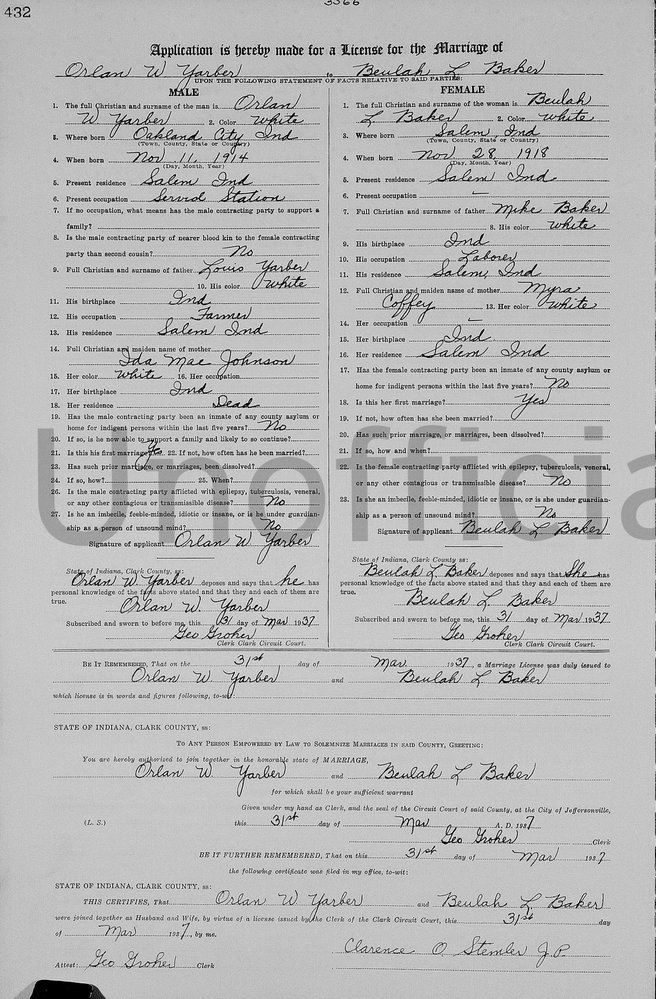 432
3366
Application is hereby made for a License for the Marriage of
Orlan W Yarber to Beulah L Baker
UPON THE FOLLOWING STATEMENT OF FACTS RELATIVE TO SAID PARTIES:
MALE
1. The full Christian and surname of the man is Orlan
W Yarber 2. Color White
3. Where born Oakland City Ind
(Town, County, State or Country)
4. When born Nov 11, 1914
(Day, Month, Year)
5. Present residence Salem Ind
6. Present occupation Servicl Station
7. If no occupation, what means has the male contracting party to support a
family?
8. Is the male contracting party of nearer blood kin to the female contracting
party than second cousin? No
9. Full Christian and surname of father Louis Yarber
10. His color White
11. His birthplace Ind
12. His occupation Farmer
13. His residence Salem Ind
14. Full Christian and maiden name of mother
Ida Mae Johnson
15. Her color White 16. Her occupation
17. Her birthplace Ind
18. Her residence Dead
19. Has the male contracting party been an inmate of any county asylum or
home for indigent persons within the last five years? No
20. If so, is he now able to support a family and likely to so continue?
21. Is this his first marriage? Yes 22. If not, how often has he been married?
23. Has such prior marriage, or marriages, been dissolved?
24. If so, how? 25. When?
26. Is the male contracting party afflicted with epilepsy, tuberculosis, veneral,
or any other contagious or transmissible disease? No
27. Is he an imbecile, feeble-minded, idiotic or insane, or is he under guardian-
ship as a person of unsound mind? No
Signature of applicant Orlan W Yarber
State of Indiana, Clark County, ss:
Orlan W Yarber deposes and says that he has
personal knowledge of the facts above stated and that they and each of them are
true. Orlan W. Yarber
Subscribed and sworn to before me, this 31 day of Mar 1937
Geo Groher
Clerk Clark Circuit Court.
FEMALE
1. The full Christian and surname of the woman is Beulah
L Baker 2. Color White
3. Where born Salem, Ind
(Town, County, State or Country)
4. When born Nov 28, 1918
(Day, Month, Year)
5. Present residence Salem Ind
6. Present occupation —
7. Full Christian and surname of father Mike Baker
8. His color White
9. His birthplace Ind
10. His occupation Laborer
11. His residence Salem, Ind
12. Full Christian and maiden name of mother Myra
Coffey 13. Her color White
14. Her occupation —
15. Her birthplace Ind
16. Her residence Salem Ind
17. Has the female contracting party been an inmate of any county asylum or
home for indigent persons within the last five years? No
18. Is this her first marriage? Yes
19. If not, how often has she been married?
20. Has such prior marriage, or marriages, been dissolved?
21. If so, how and when?
22. Is the female contracting party afflicted with epilepsy, tuberculosis, veneral,
or any other contagious or transmissible disease? No
23. Is she an imbecile, feeble-minded, idiotic or insane, or is she under guardian-
ship as a person of unsound mind? No
Signature of applicant Beulah L Baker
State of Indiana, Clark County ss:
Beulah L Baker deposes and says that She has
personal knowledge of the facts above stated and that they and each of them are
true. Beulah L Baker
Subscribed and sworn to before me, this 31 day of Mar 1937
Geo Groher
Clerk Clark Circuit Court.
Unofficia
BE IT REMEMBERED, That on the 31st day of Mar 1937, a Marriage License was duly issued to
Orlan W. Yarber and Beulah L Baker
which license is in words and figures following, to-wit:
STATE OF INDIANA, CLARK COUNTY, ss:
TO ANY PERSON EMPOWERED BY LAW TO SOLEMNIZE MARRIAGES IN SAID COUNTY, GREETING:
You are hereby authorized to join together in the honorable state of MARRIAGE,
Orlan W. Yarber and Beulah L Baker
for which shall be your sufficient warrant
Given under my hand as Clerk, and the seal of the Circuit Court of said County, at the City of Jeffersonville,
(L. S.) this 31st day of Mar A. D. 1937
Geo Groher Clerk
BE IT FURTHER REMEMBERED, That on this 31st day of Mar 1937
the following certificate was filed in my office, to-wit:
STATE OF INDIANA, CLARK COUNTY, ss:
THIS CERTIFIES, That Orlan W Yarber and Beulah L Baker
were joined together as Husband and Wife, by virtue of a license issued by the Clerk of the Clark Circuit Court, this 31st day
of Mar 1937, by me.
Clarence O. Stemler J.P.
Attest: Geo Groher Clerk